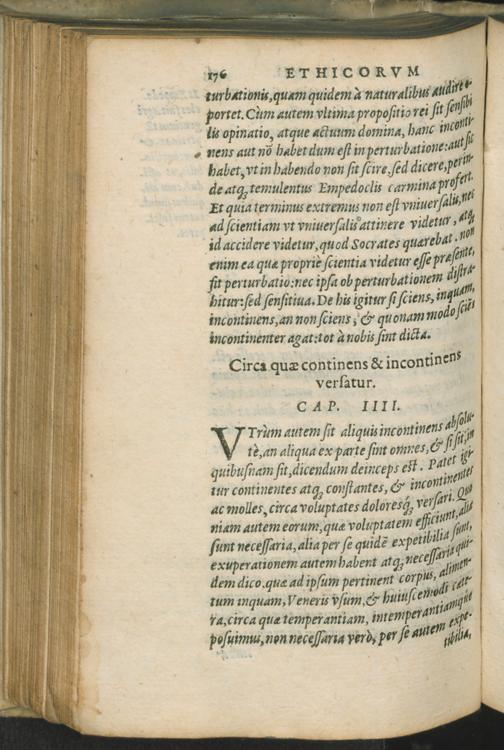 176 ETHICORVM
turbationis, quam quidem à naturalibus audire o-
portet. Cùm autem vltima propositio rei sit sensibi
lis opinatio, atque actuum domina, hanc inconti-
nens aut nō habet dum est in perturbatione: aut sic
habet, vt in habendo non sit scire, sed dicere, perin-
de atq; temulentus Empedoclis carmina profert.
Et quia terminus extremus non est vniuersalis, nec
ad scientiam vt vniuersalis attinere videtur, atq;
id accidere videtur, quod Socrates quærebat. non
enim ea quæ propriè scientia videtur esse præsente,
fit perturbatio: nec ipsa ob perturbationem distra-
hitur: sed sensitiua. De his igitur si sciens, inquam,
incontinens, an non sciens, & quonam modo sciēs
incontinenter agat: tot à nobis sint dicta.
Circa quæ continens & incontinens
versatur.
CAP. IIII.
VTrùm autem sit aliquis incontinens absolu-
tè, an aliqua ex parte sint omnes, & si sit, in
quibusnam sit, dicendum deinceps est. Patet igi-
tur continentes atq; constantes, & incontinentes
ac molles, circa voluptates doloresq; versari. Quo
niam autem eorum, quæ voluptatem efficiunt, alia
sunt necessaria, alia per se quidē expetibilia sunt,
exuperationem autem habent atq; necessaria qui-
dem dico. quæ ad ipsum pertinent corpus, alimen-
tum inquam, Veneris vsum, & huiuscemodi cæte-
ra, circa quæ temperantiam, intemperantiamque
posuimus, non necessaria verò, per se autem expe-
tibilia,